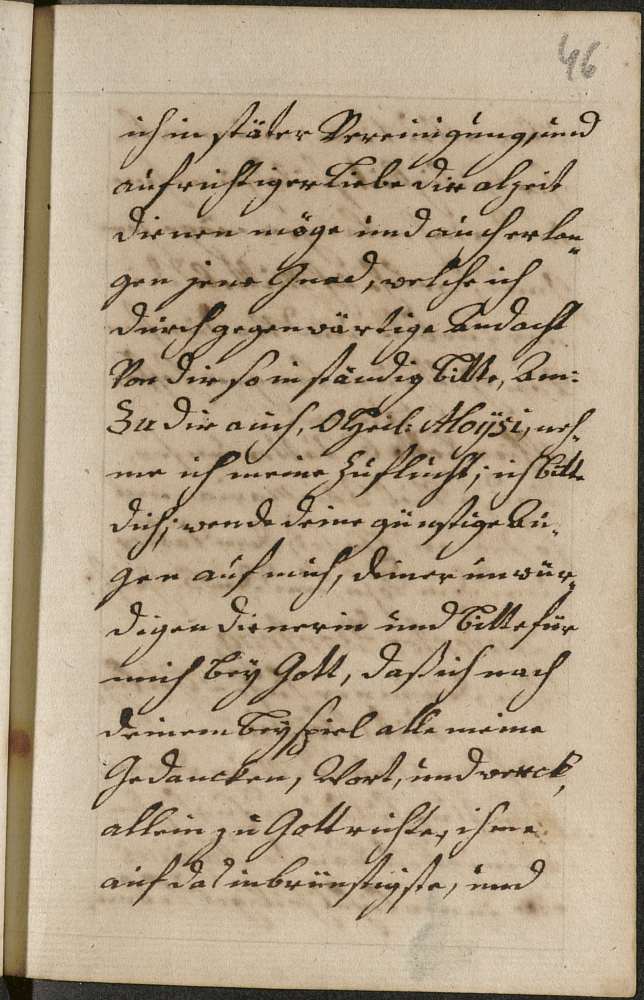 46
ich in stäter Vereinigung, und
aufrichtiger Liebe dir alzeit
dienen möge und auch erlan„
gen jene Gnad, welche ich
durch gegenwärtige Andacht
Von dir so inständig bitte, Am:
Zu dir auch, O Heil: Aloÿsi, neh„
me ich meine Zuflucht; ich bitte
dich; wende deine günstige Au„
gen auf mich, deiner unwür„
digen dienerin und bitte für
mich beÿ Gott, daß ich nach
deinem beÿspiel alle meine
Gedancken, Wort, und werck,
allein zu Gott richte, ihme
auf das inbrünstigste, und